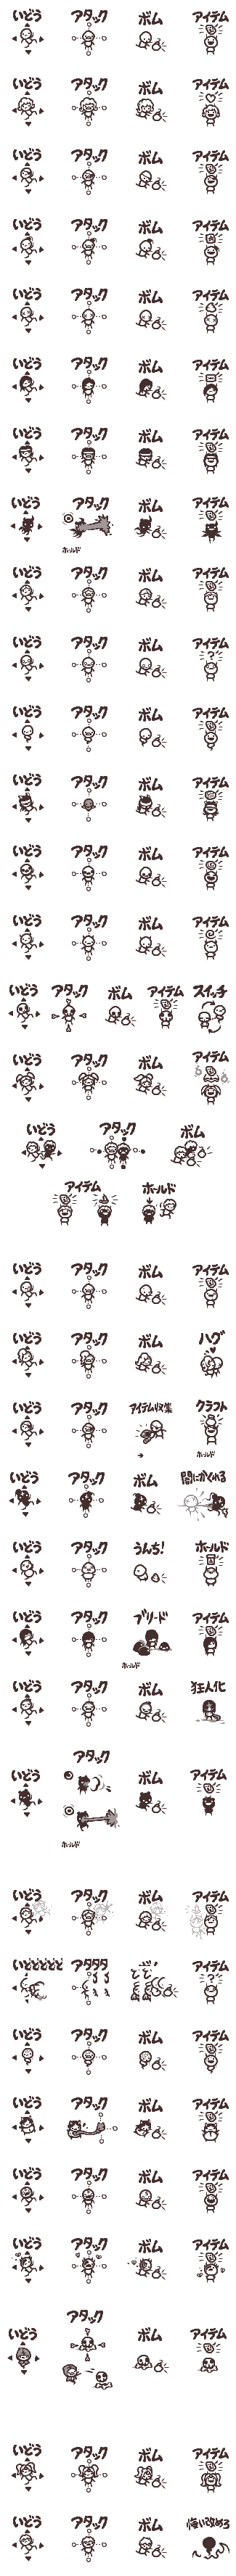 いどう アタック ボム アイテム
いどう アタック ボム アイテム
いどう アタック ボム アイテム
いどう アタック ボム アイテム
いどう アタック ボム アイテム
いどう アタック ボム アイテム
いどう アタック ボム アイテム
いどう アタック ボム アイテム
ホールド
いどう アタック ボム アイテム
いどう アタック ボム アイテム
?
いどう アタック ボム アイテム
いどう アタック ボム アイテム
いどう アタック ボム アイテム
いどう アタック ボム アイテム
いどう アタック ボム アイテム スイッチ
いどう アタック ボム アイテム
いどう アタック ボム
アイテム ホールド
いどう アタック ボム アイテム
いどう アタック ボム ハグ
いどう アタック アイテム収集 クラフト
ホールド
いどう アタック ボム 闇にかくれる
いどう アタック うんち! ホールド
いどう アタック ブリード アイテム
ホールド
いどう アタック ボム 狂人化
アタック
いどう ボム アイテム
ホールド
いどう アタック ボム アイテム
いどどどどど アタタタ アイテム
?
いどう アタック ボム アイテム
いどう アタック ボム アイテム
いどう アタック ボム アイテム
いどう アタック ボム アイテム
アタック
いどう ボム アイテム
いどう アタック ボム アイテム
いどう アタック ボム 悔い改めろ